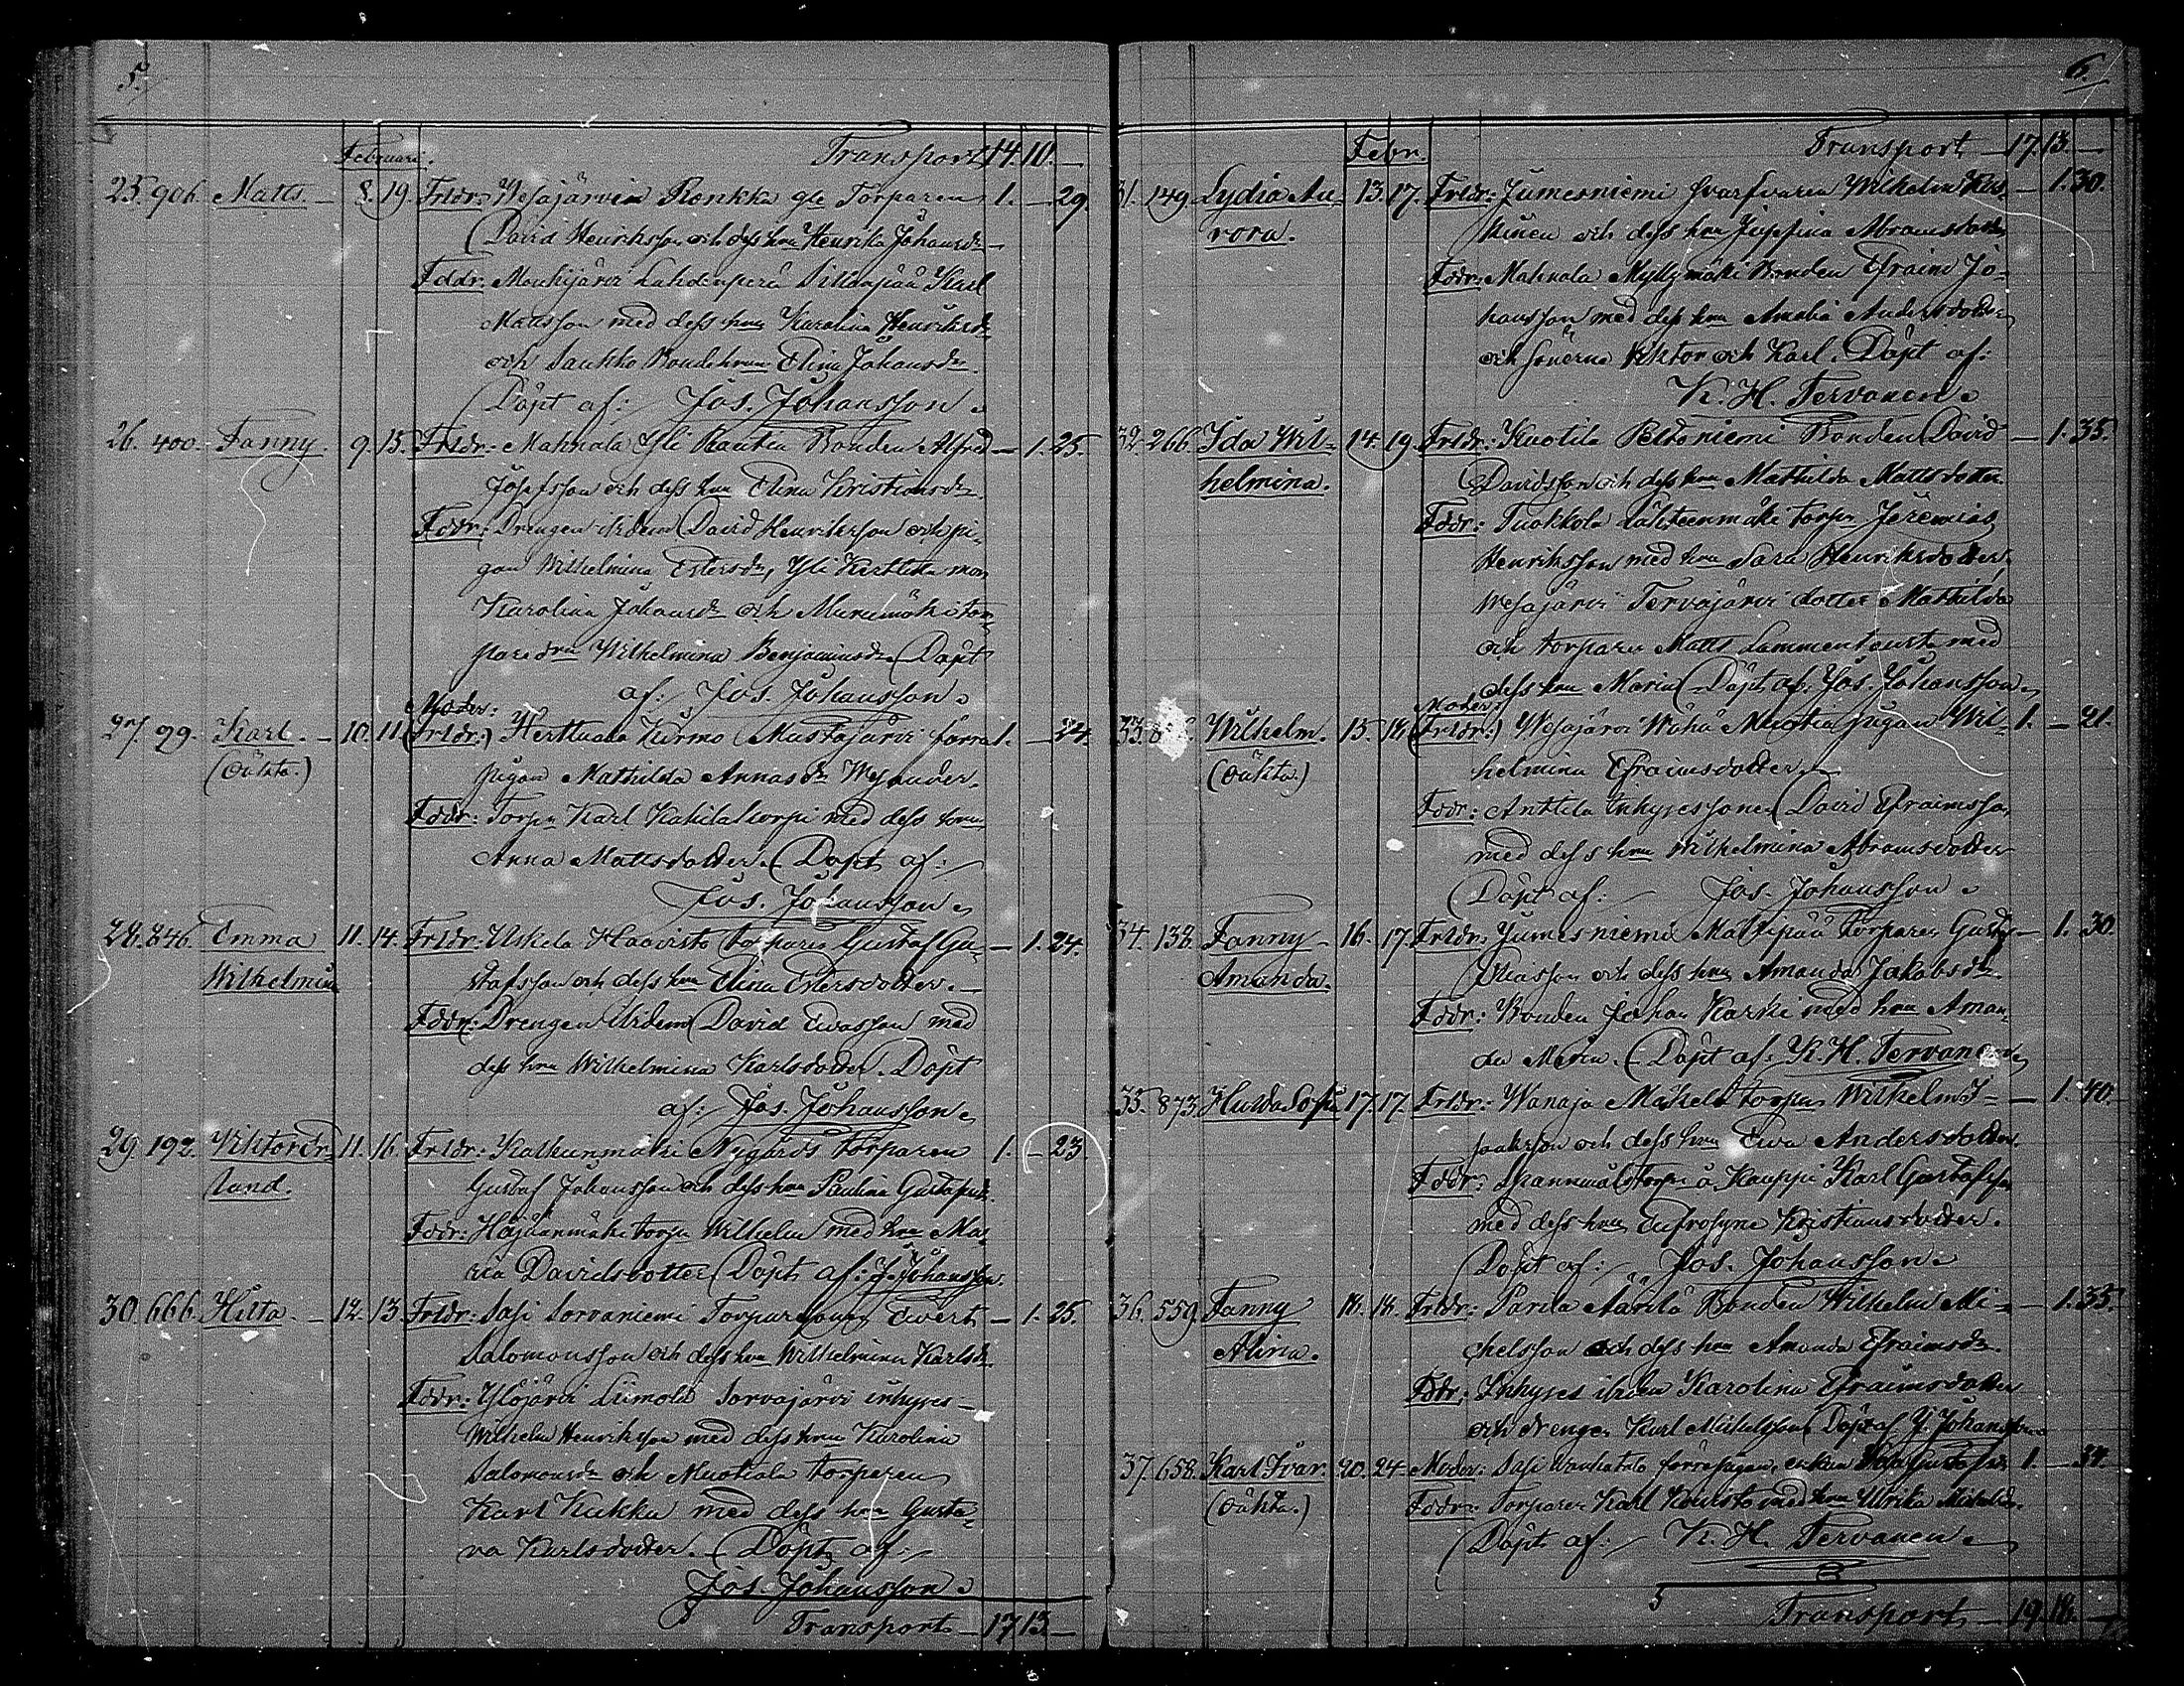 5.
Februari. Transport 14. 10. —
25. 906. Matts. — 8. 19. Frldr: Wesajärvin Ronkka gle Torparen 1. — 29.
David Henriksson och dess hru Henrika Johansdr —
Fddr: Mouhijärvi Lahdenperä Sillanpää Karl
Mattsson med dess hru Karolina Henriksdr
och Saukko Bondehrun Elina Johansdr.
Döpt af: Jos. Johansson.
26. 400. Fanny. 9. 15. Frldr: Mahnala Yli Rautia Bonden Alfred — 1. 25.
Josefsson och dess hru Elina Kristiansdr.
Fddr: Drengen ibidem David Henriksson och pi-
gan Wilhelmina Estersdr, Yli Kerttula
Karolina Johansdr och Muramäki tor-
paredrn Wilhelmina Benjaminsdr. Döpt
af: Jos. Johansson.
Moder:
27. 29. Karl. — 10. 11. (Frldr:) Herttuala Kurmo Mustajärvi förra 1. — 34.
(Oäkta.) pigan Mathilda Annasdr
Fddr: Torpn Karl Kakilakorpi med dess hru
Anna Mattsdotter. Döpt af:
Jos. Johansson.
28. 846. Emma 11. 14. Frldr: Uskela Haavisto torparen Gustaf Gu- — 1. 24.
Wilhelmina stafsson och dess hru Elina Estersdotter. —
Fddr: Drengen ibidem David Ewasson med
dess hru Wilhelmina Karlsdotter. Döpt
af: Jos. Johansson.
29. 192. Viktor Er- 11. 16. Frldr: Kalkunmäki Nygårds torparen 1. — 23.
land. Gustaf Johansson och dess hru Paulina Gustafsdr.
Fddr: Höijäänmäki torpn Wilhelm med hru Ma-
ria Davidsdotter. Döpt af: J. Johansson.
30. 666. Hilta. — 12. 13. Frldr: Sasi Sorvaniemi Torparesonen Evert — 1. 25.
Salomonsson och dess hru Wilhelmina Karlsdr.
Fddr: Ylöjärvi Liimola Sorvajärvi inhyses —
Wilhelm Henriksson med dess hru Karolina
Salomonsdr och Muotiala torparen
Karl Kukka med dess hru Gusta-
va Karlsdotter. Döpt af:
Jos. Johansson.
Transport — 17 13 —
6.
Febr. Transport — 17. 13. —
31. 149. Lydia Au- 13. 17. Frldr: Jumesniemi Svarfvaren Wilhelm Kus- — 1. 30.
rora. kinen och dess hru Juppina Abramsdotter
Fddr: Mahnala Myllymäki Bonden Efraim Jo-
hansson med dess hru Amalia Andersdotter
och Sönerna Viktor och Karl. Döpt af:
K. H. Tervonen.
32. 266. Ida Wil- 14. 19. Frldr: Kuotila Peltoniemi Bonden David — 1. 35.
helmina. Davidsson och dess hru Mathilda Mattsdotter.
Fddr: Tuokkola Lähteenmäki torpn Jeremias
Henriksson med hru Sara Henriksdotter,
Wesajärvi Tervajärvi dotter Mathilda
och torparen Matts Lammentausta med
dess hru Maria. Döpt af: Jos. Johansson.
Moder:
33. Wilhelm. 15. 18. (Frldr:) Wesajärvi Wähä Muotia pigan Wil- 1. — 21.
(Oäkta.) helmina Efraimsdotter. —
Fddr: Anttila Inhysessonen David Efraimsson
med dess hru Wilhelmina Abramsdotter
Döpt af: Jos. Johansson.
34. 138. Fanny 16. 17. Frldr: Jumesniemi Mattipää torparen Gustaf — 1. 30.
Amanda. Eliasson och dess hru Amanda Jakobsdr.
Fddr: Bonden Johan Karhi med hru Aman-
da Maria. Döpt af: K. H. Tervonen.
35. 873. Hulda Sofia 17. 17. Frldr: Wanaja Mäkelä torpn Wilhelm I- — 1. 40.
saaksson och dess hru Ewa Andersdotter.
Fddr: Spannmåls torpn å Kauppi Karl Gustafsson
med dess hru Eufrosyne Kristiansdotter.
Döpt af: Jos. Johansson.
36. 559. Fanny 18. 18. Frldr: Parila Äärilä Bonden Wilhelm Mi- — 1. 35.
Alina. chelsson och dess hru Amanda Efraimsdr.
Fddr: Inhyses ibidem Karolina Efraimsdotter
och drengen Karl Mickelsson. Döpt af J. Johansson
37. 658. Karl Ivar. 20. 24. Moder: Sasi förra pigan, enkan Gustafsdr 1. — 34.
(Oäkta.) Fddr: Torparen Karl Koivisto med hru Ulrika Michelsdr.
Döpt af: K. H. Tervonen.
Transport — 19. 18. —